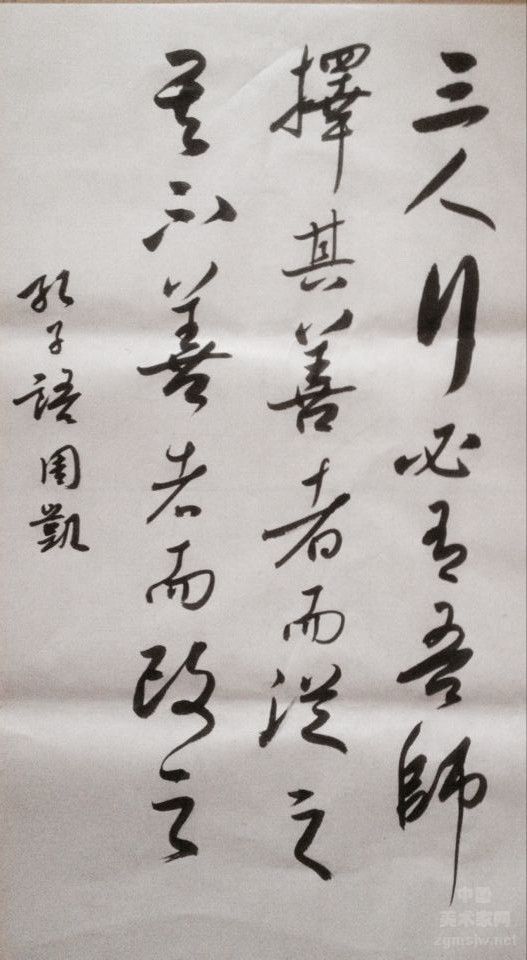 三人行必有吾師
擇其善者而從之
其不善者而改之
孔子語周凱
中國
美术家网
zgmsjw.net